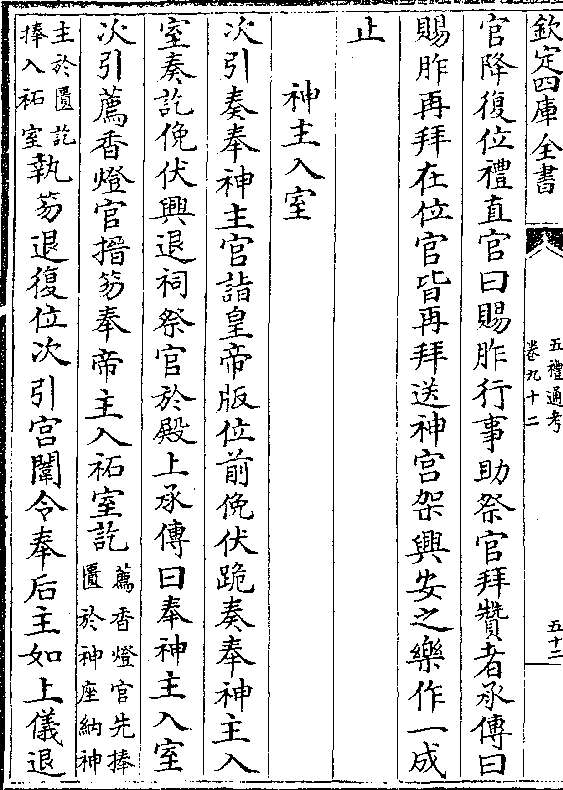 欽定四庫全書
五禮通考
卷九十二
五十二
官降復位禮直官曰賜胙行事助祭官拜贊者承傳曰
賜胙再拜在位官皆再拜送神宮架興安之樂作一成
止
神主入室
次引奏奉神主官詣皇帝版位前俛伏跪奏奉神主入
室奏訖俛伏興退祠祭官於殿上承傳曰奉神主入室
次引薦香燈官搢笏奉帝主入祏室訖薦香燈官先捧
匱於神座納神
主於匱訖
捧入祏室執笏退復位次引宮闈令奉后主如上儀退